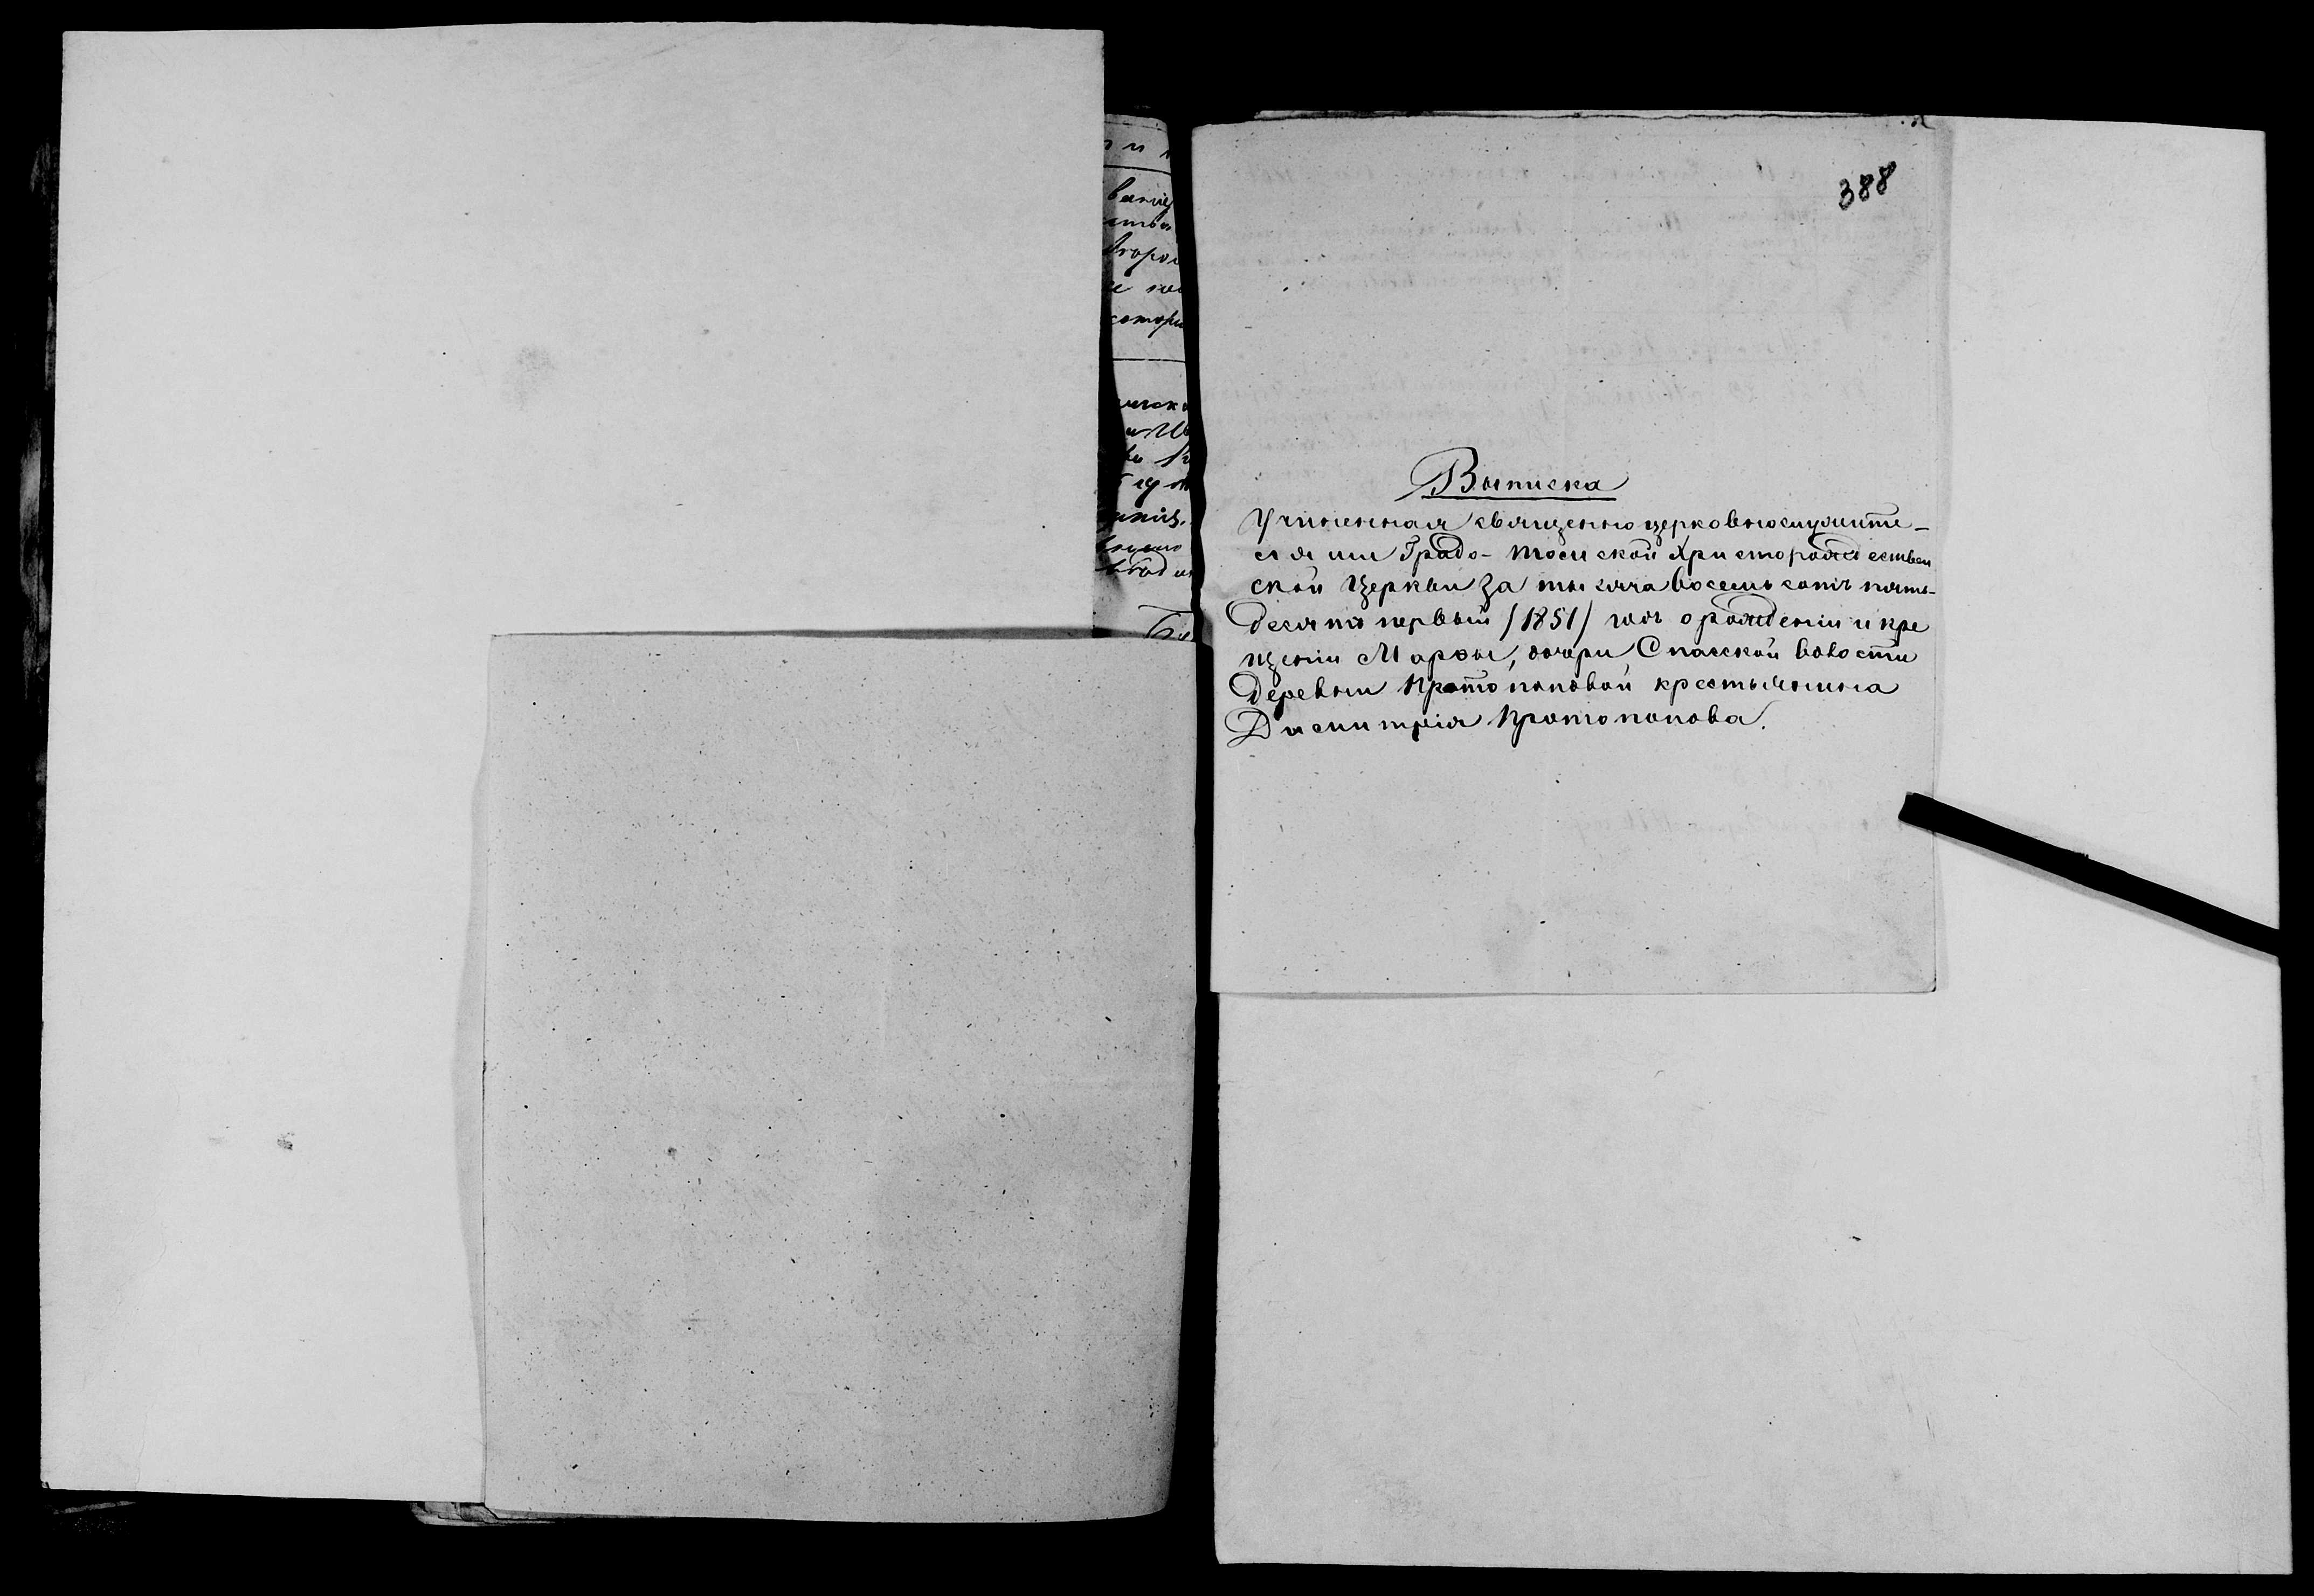 388
Выписка
Учиненная священноцерковнослужите-
лями Градо-Томской Христорождествен
ской Церкви за тысяча восемь сотъ пять-
десятъ первый /1851/ годъ о рожденіи и кре
щеніи Марѳы, дочери Спасской волости
деревни Протопоповой крестьянина
Димитрія Протопопова.